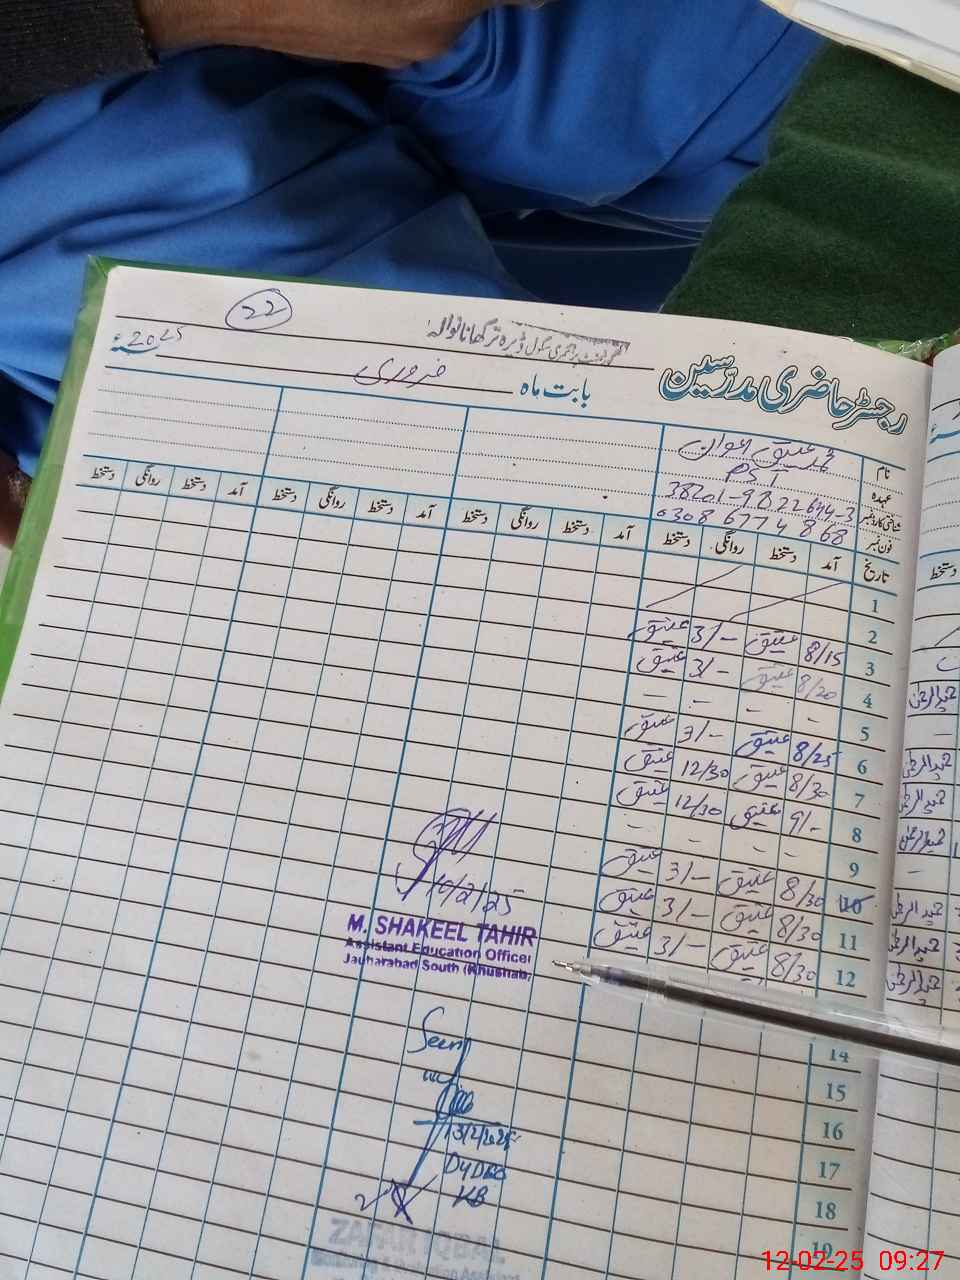 22
گورنمنٹ پرائمری سکول ڈیرہ ترکھانانوالہ
رجسٹر حاضری مدرسین
بابت ماہ فروری 2025ء
نام عتیق اعوان
عہدہ PST
شناختی کارڈ نمبر 38201-9822644-3
فون نمبر 0308 6774868
تاریخ آمد دستخط روانگی دستخط آمد دستخط روانگی دستخط آمد دستخط روانگی دستخط آمد دستخط روانگی دستخط
1
2
3 8/15 عتیق 3/- عتیق
4 8/20 عتیق 3/- عتیق
5 - - - -
6 8/25 عتیق 3/- عتیق
7 8/30 عتیق 12/30 عتیق
8 9/- عتیق 12/30 عتیق
9 - - - -
10 8/30 عتیق 3/- عتیق
11 8/30 عتیق 3/- عتیق
12 8/30 عتیق 3/- عتیق
14
15
16
17
18
19
10/2/25
M. SHAKEEL TAHIR
Assistant Education Officer
Jauharabad South (Khushab)
Seen
13/2/2025
DyDEO
KB
ZAFAR IQBAL
Monitoring & Evaluation Assistant
دستخط
حمیدالرحمٰن
حمیدالرحمٰن
حمیدالرحمٰن
حمیدالرحمٰن
حمیدالرحمٰن
حمیدالرحمٰن
حمیدالرحمٰن
12-02-25 09:27